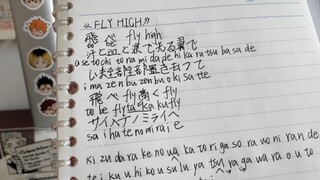 ≪FLY HIGH≫
飛べ fly high
汗と血と涙で光る翼で
ase to chi to na mi da de hi ka ru tsu ba sa de
いま全部全部置き去って
i ma zen bu zen bu o ki sa tte
飛べ fly 高く fly
to be fly ta ka ku fly
サイハテノミライへ
sa i ha te no mi ra i e
ki zu da ra ke no ka to ri ga so ra wo ni ran de
te i ku u hi ko u su